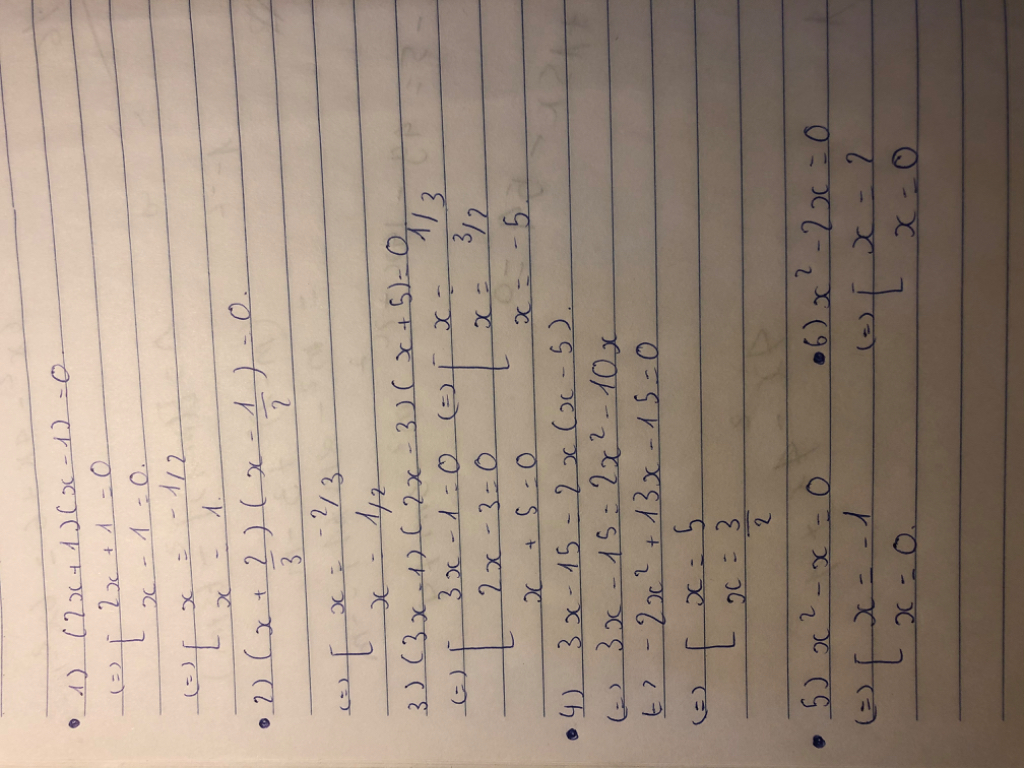 • 1) (2x+1)(x-1)=0.
(=) [ 2x+1=0
x-1=0.
(=) [ x = -1/2
x = 1.
• 2) (x+2/3)(x-1/2)=0.
(=) [ x = -2/3
x = 1/2
3) (3x-1)(2x-3)(x+5)=0
(=) [ 3x-1=0 (=) [ x = 1/3
2x-3=0 x = 3/2
x+5=0 x = -5.
• 4) 3x-15=2x(x-5).
(=) 3x-15=2x²-10x
(=) -2x²+13x-15=0
(=) [ x=5
x=3/2
• 5) x²-x=0 • 6) x²-2x=0
(=) [ x=-1 (=) [ x=2
x=0. x=0